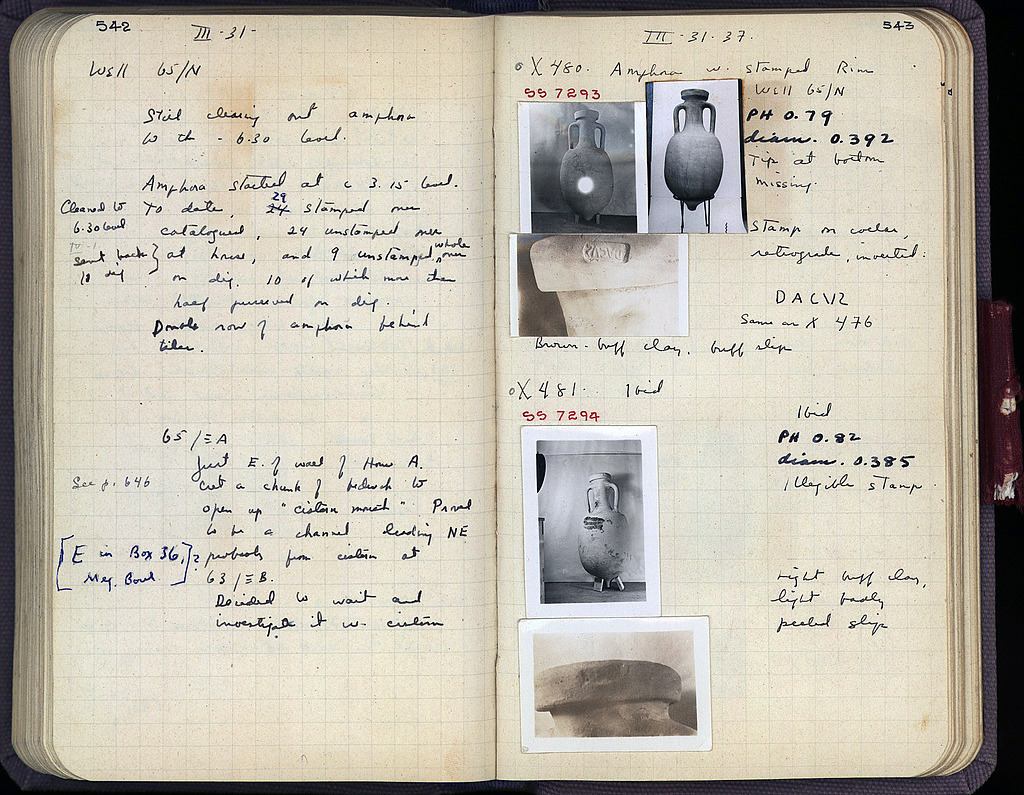 542
III - 31 -
Well 65/N
Still clearing out amphora
to the - 6.30 level.
Amphora started at c 3.15 level.
Cleaned to
6.30 level
sent back
10 dig
To date, 24 29 stamped ones
catalogued, 24 unstamped ones
at house, and 9 unstamped, whole ones
on dig. 10 of which more than
half preserved on dig.
Double row of amphora behind
tiles.
65/ΞA
Just E. of wall of House A.
See p. 646
Cut a chunk of bedrock to
open up "cistern mouth" Proved
to be a channel leading NE
[E in Box 36,
Meg. Bowl]?
probably from cistern at
63/ΞB.
Decided to wait and
investigate it w. cistern
543
III - 31 - 37.
o X 480. Amphora w. stamped Rim
SS 7293
Well 65/N
PH 0.79
diam. 0.392
Tip at bottom
missing.
Stamp on collar,
retrograde, inverted:
DACV12
Same as X 476
Brown-buff clay. buff slip
o X 481. Ibid
SS 7294
Ibid
PH 0.82
diam. 0.385
Illegible stamp.
Light buff clay,
light badly
peeled slip